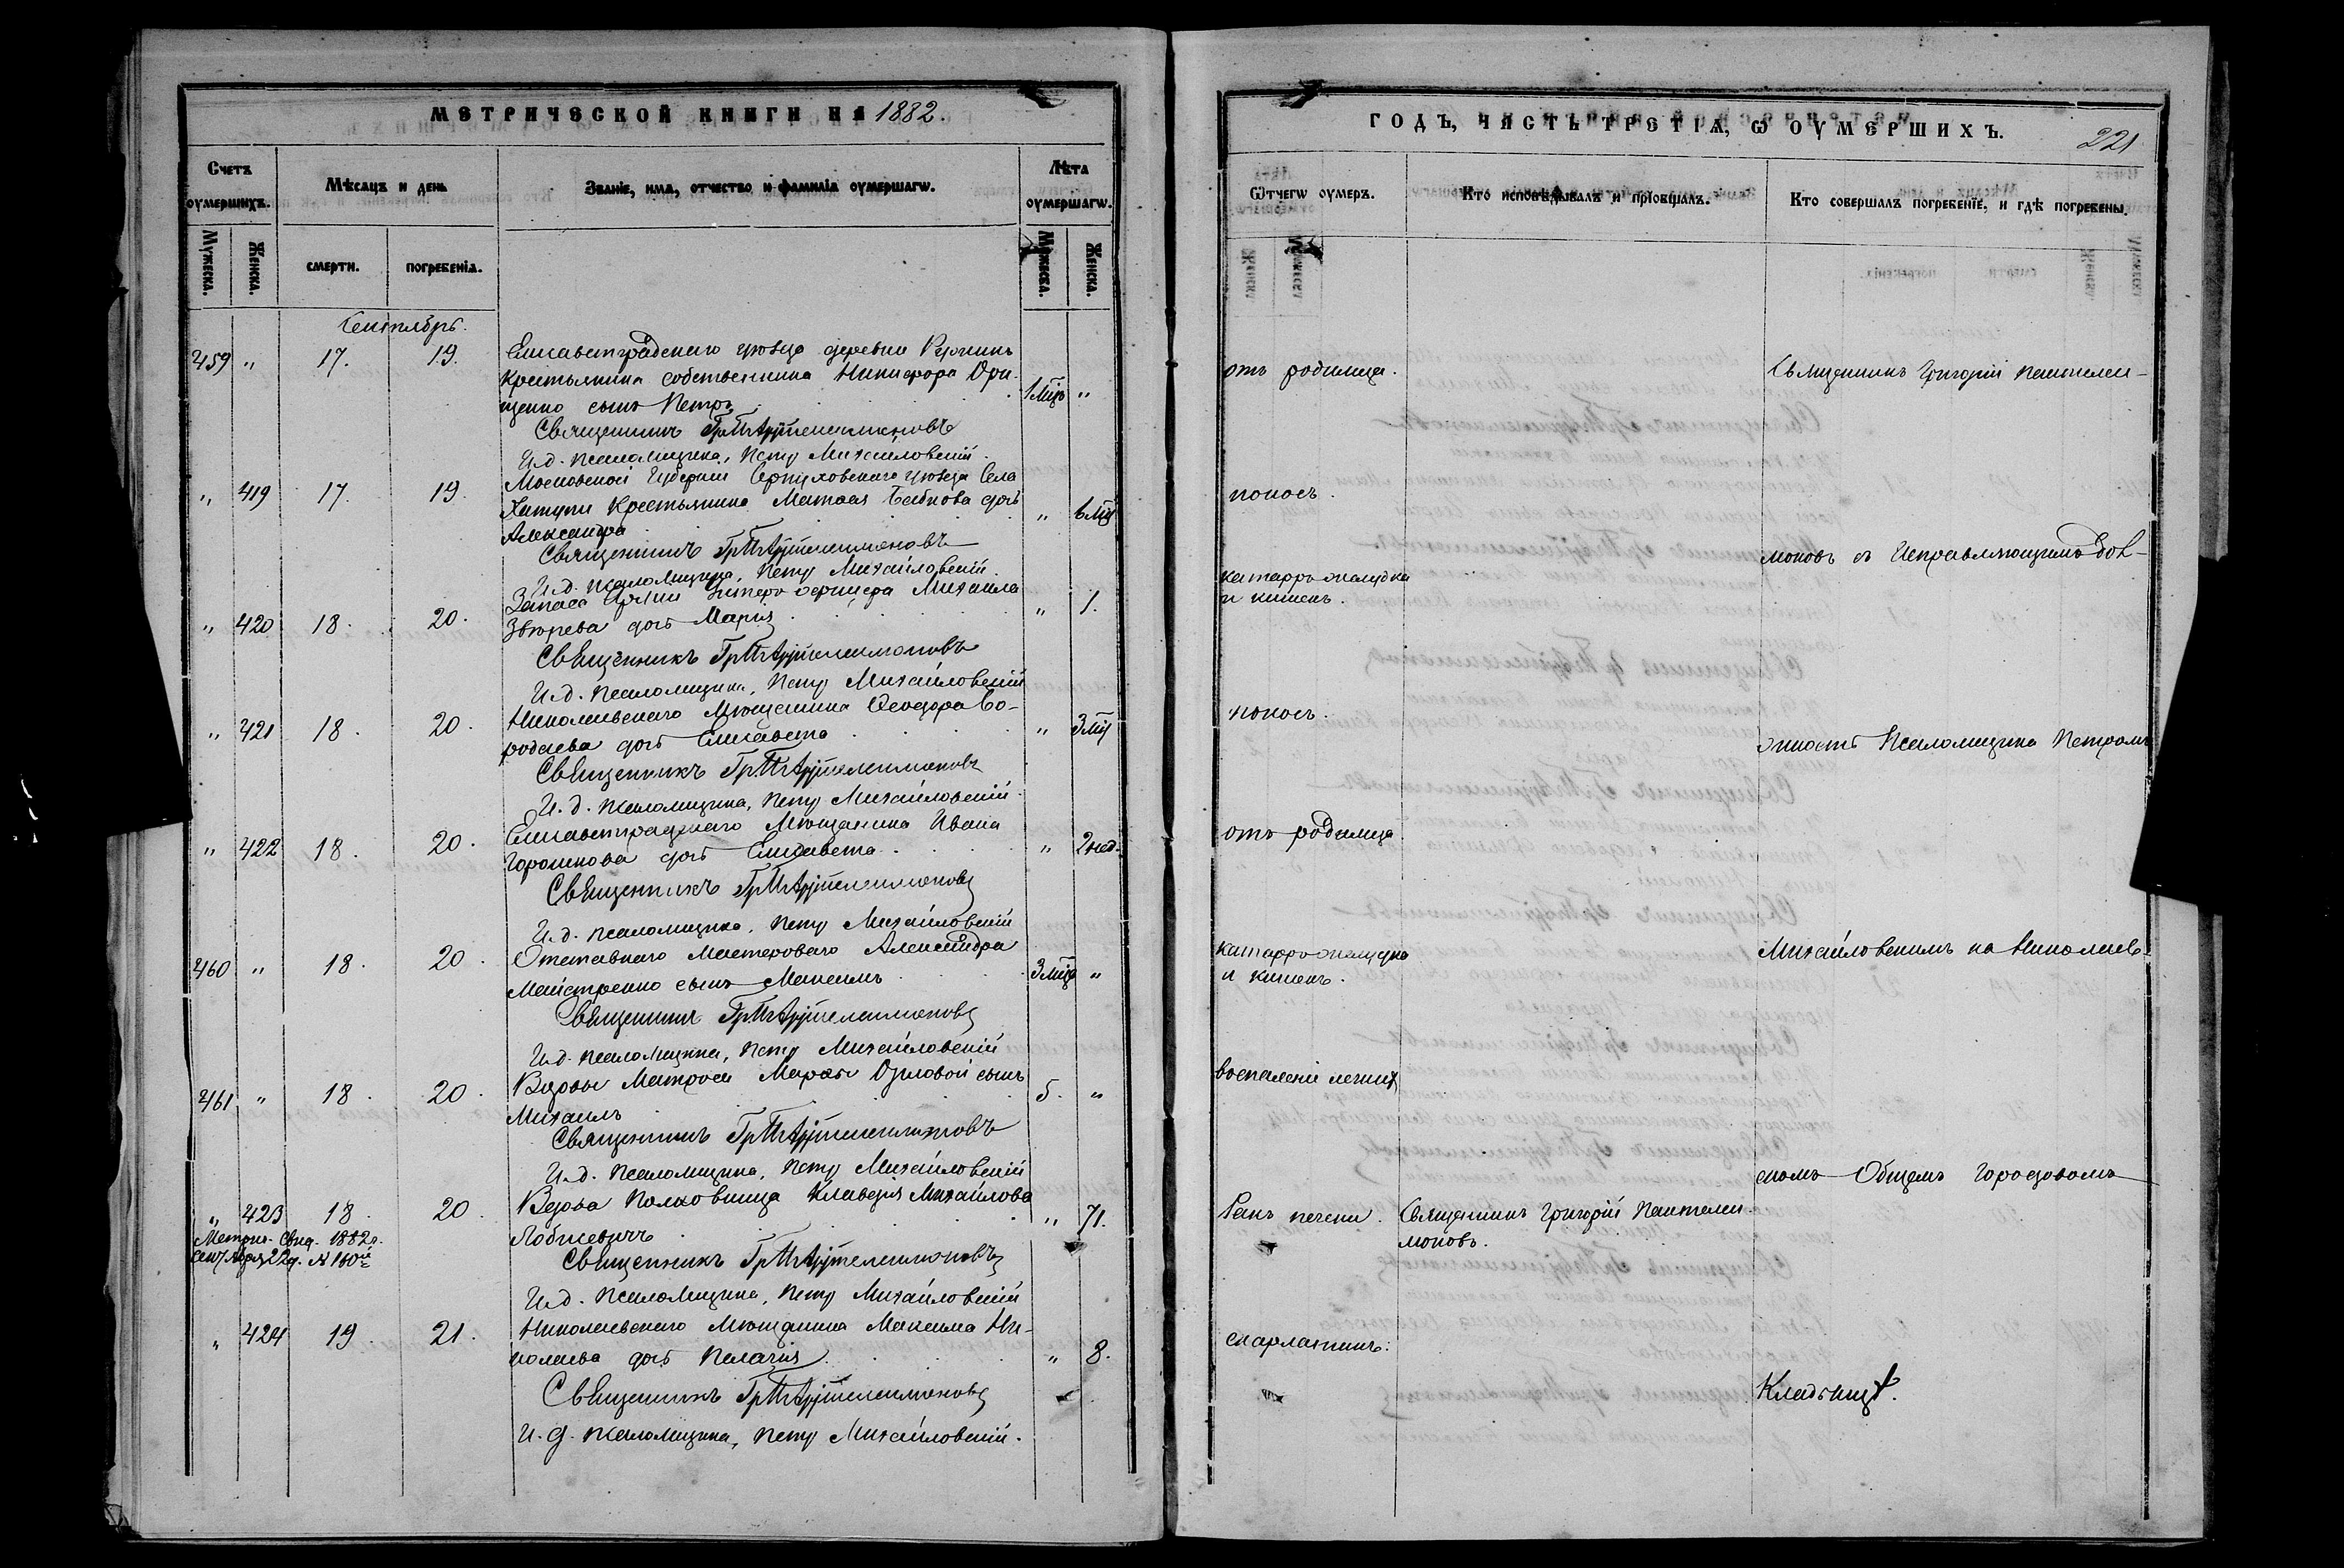 МЕТРИЧЕСКОЙ КНИГИ НА 1882.
Счетъ оумершихъ.
Мѣсяцъ и день
Званіе, имя, отчество и фамилія оумершагѡ.
Лѣта оумершагѡ.
Мужеска.
Женска.
смерти.
погребенія.
Мужеска.
Женска.
Сентябрь.
459 " 17. 19. Елисаветградскаго уѣзда деревни
Крестьянина собственника Никифора Они-
щенко сынъ Петръ 1 мѣс "
Священникъ Гр. Пантелеимоновъ
И.д. псаломщика, Петръ Михайловскій.
" 419 17. 19. Московской Губерніи Серпуховскаго уѣзда Села
Хатуни Крестьянина Матвея дочь
Александра " 6 мѣс
Священникъ Гр. Пантелеимоновъ
И.д. псаломщика, Петръ Михайловскій.
" 420 18. 20. Запаса Арміи Унтеръ офицера Михаила
Звѣрева дочь Марія " 1.
Священникъ Гр. Пантелеимоновъ
И.д. псаломщика, Петръ Михайловскій
" 421 18. 20. Николаевскаго Мѣщанина Ѳеодора Бо-
родаева дочь Елисавета " 3 мѣс
Священникъ Гр. Пантелеимоновъ
И.д. псаломщика, Петръ Михайловскій.
" 422 18. 20. Елисаветградскаго Мѣщанина Ивана
Горошкова дочь Елисавета " 2 нед.
Священникъ Гр. Пантелеимоновъ
И.д. псаломщика, Петръ Михайловскій
460 " 18. 20. Отставнаго Мастероваго Александра
Майстренко сынъ Максимъ 3 мѣс "
Священникъ Гр. Пантелеимоновъ
И.д. псаломщика, Петръ Михайловскій
461 " 18. 20. Вдовы Матроса Марѳы Орловой сынъ
Михаилъ 5. "
Священникъ Гр. Пантелеимоновъ
И.д. псаломщика, Петръ Михайловскій
" 423 18. 20. Вдова Полковница Клавдія Михайлова
Лобысевичъ " 71.
Метрич. Свид. 1882 г.
Сентября 22 д. № 160й
Священникъ Гр. Пантелеимоновъ
И.д. псаломщика, Петръ Михайловскій
" 424 19. 21. Николаевскаго Мѣщанина Максима Ни-
колаева дочь Пелагія " 8.
Священникъ Гр. Пантелеимоновъ
И.д. псаломщика, Петръ Михайловскій.
ГОДЪ, ЧАСТЬ ТРЕТІЯ, Ѡ ОУМЕРШИХЪ.
221
Ѿчегѡ оумеръ.
Кто исповѣдывалъ и пріобщалъ.
Кто совершалъ погребеніе, и гдѣ погребены.
отъ родимца. Священникъ Григорій Пантелеи-
поносъ.
моновъ съ Исправляющимъ дол-
катарръ желудка
и кишекъ.
поносъ.
жность Псаломщика Петромъ
отъ родимца
катарръ желудка Михайловскимъ на Николаев-
и кишекъ.
воспаленіе легкихъ
скомъ Общемъ Городовомъ
Ракъ печени. Священникъ Григорій Пантелеи-
моновъ.
скарлатина.
Кладбищѣ.